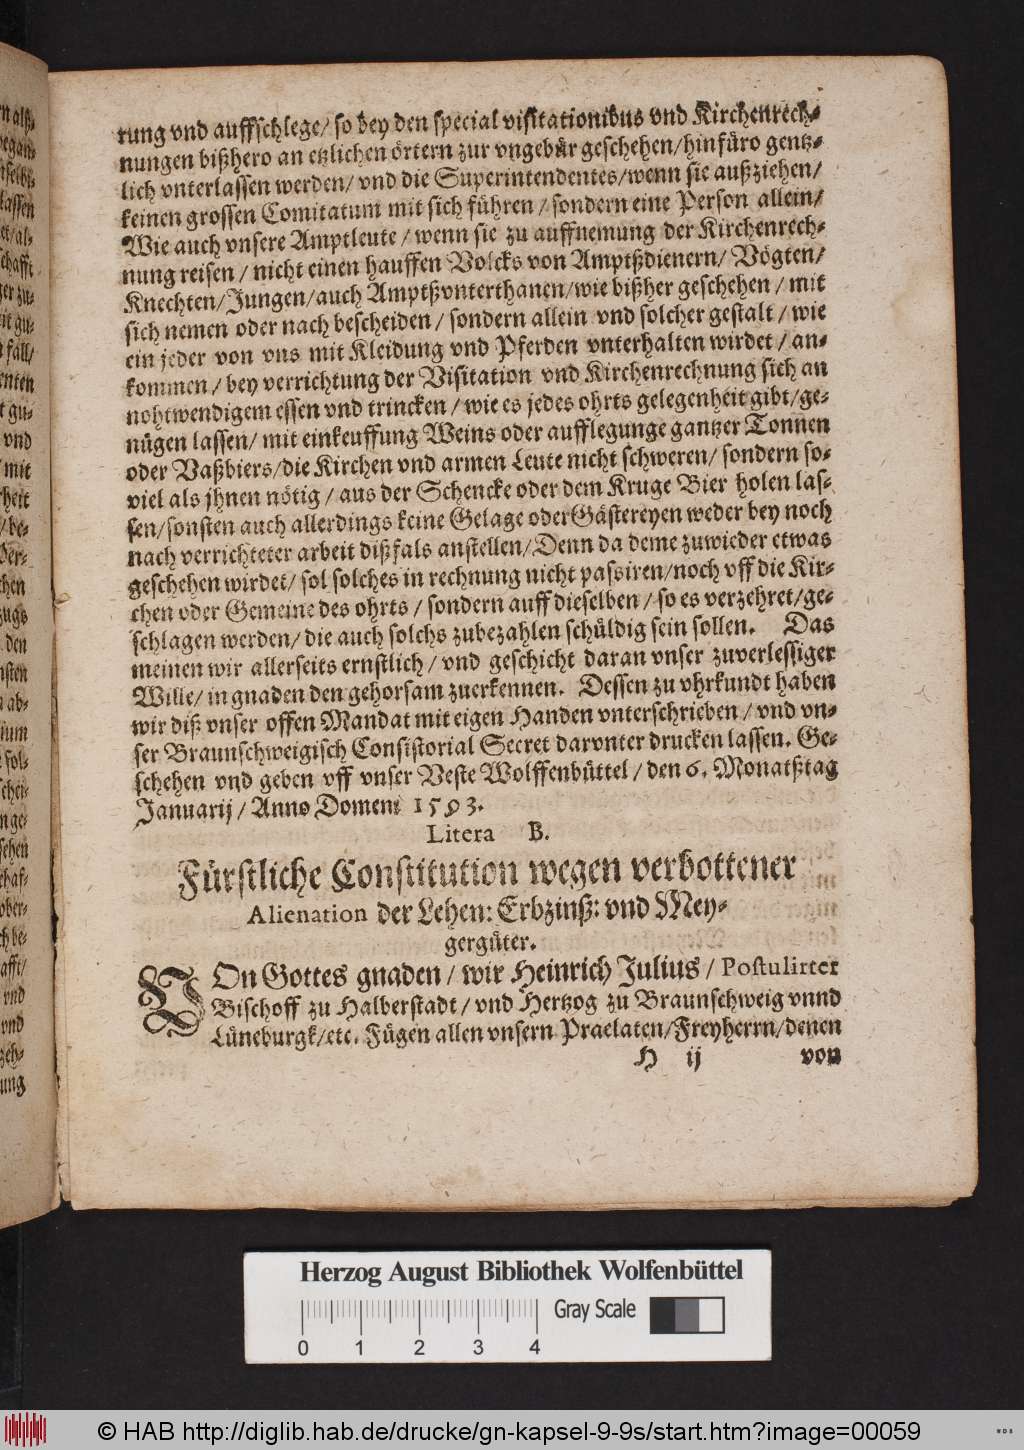 rung vnd auffschlege/ so bey den special visitationibus vnd Kirchenrech-
nungen bißhero an etzlichen örtern zur vngebür geschehen/hinfüro gentz-
lich vnterlassen werden/ vnd die Superintendentes/wenn sie außziehen/
keinen grossen Comitatum mit sich führen/ sondern eine Person allein/
Wie auch vnsere Amptleute/ wenn sie zu auffnemung der Kirchenrech-
nung reisen/ nicht einen hauffen Volcks von Amptßdienern/ Vögten/
Knechten/Jungen/auch Amptßvnterthanen/wie bißher geschehen/ mit
sich nemen oder nach bescheiden/ sondern allein vnd solcher gestalt/ wie
ein jeder von vns mit Kleidung vnd Pferden vnterhalten wirdet/ an-
kommen/ bey verrichtung der Visitation vnd Kirchenrechnung sich an
nohtwendigem essen vnd trincken/ wie es jedes ohrts gelegenheit gibt/ge-
nügen lassen/ mit einkeuffung Weins oder aufflegunge gantzer Tonnen
oder Vaßbiers/die Kirchen vnd armen Leute nicht schweren/ sondern so-
viel als jhnen nötig/ aus der Schencke oder dem Kruge Bier holen las-
sen/sonsten auch allerdings keine Gelage oder Gästereyen weder bey noch
nach verrichteter arbeit dißfals anstellen/Denn da deme zuwieder etwas
geschehen wirdet/ sol solches in rechnung nicht passiren/noch vff die Kir-
chen oder Gemeine des ohrts/ sondern auff dieselben/ so es verzehret/ge-
schlagen werden/die auch solchs zubezahlen schüldig sein sollen. Das
meinen wir allerseits ernstlich/ vnd geschicht daran vnser zuverlessiger
Wille/ in gnaden den gehorsam zuerkennen. Dessen zu vhrkundt haben
wir diß vnser offen Mandat mit eigen Handen vnterschrieben/ vnd vn-
ser Braunschweigisch Consistorial Secret darvnter drucken lassen. Ge-
schehen vnd geben vff vnser Veste Wolffenbüttel/ den 6. Monatßtag
Januarij/ Anno Domeni 1593.
Litera B.
Fürstliche Constitution wegen verbottener
Alienation der Lehen: Erbzinß: vnd Mey-
gergüter.
VOn Gottes gnaden/ wir Heinrich Julius/ Postulirter
Bischoff zu Halberstadt/ vnd Hertzog zu Braunschweig vnnd
Lüneburgk/etc. Fügen allen vnsern Praelaten/Freyherrn/denen
H ij von
Herzog August Bibliothek Wolfenbüttel
Gray Scale
0 1 2 3 4
© HAB http://diglib.hab.de/drucke/gn-kapsel-9-9s/start.htm?image=00059